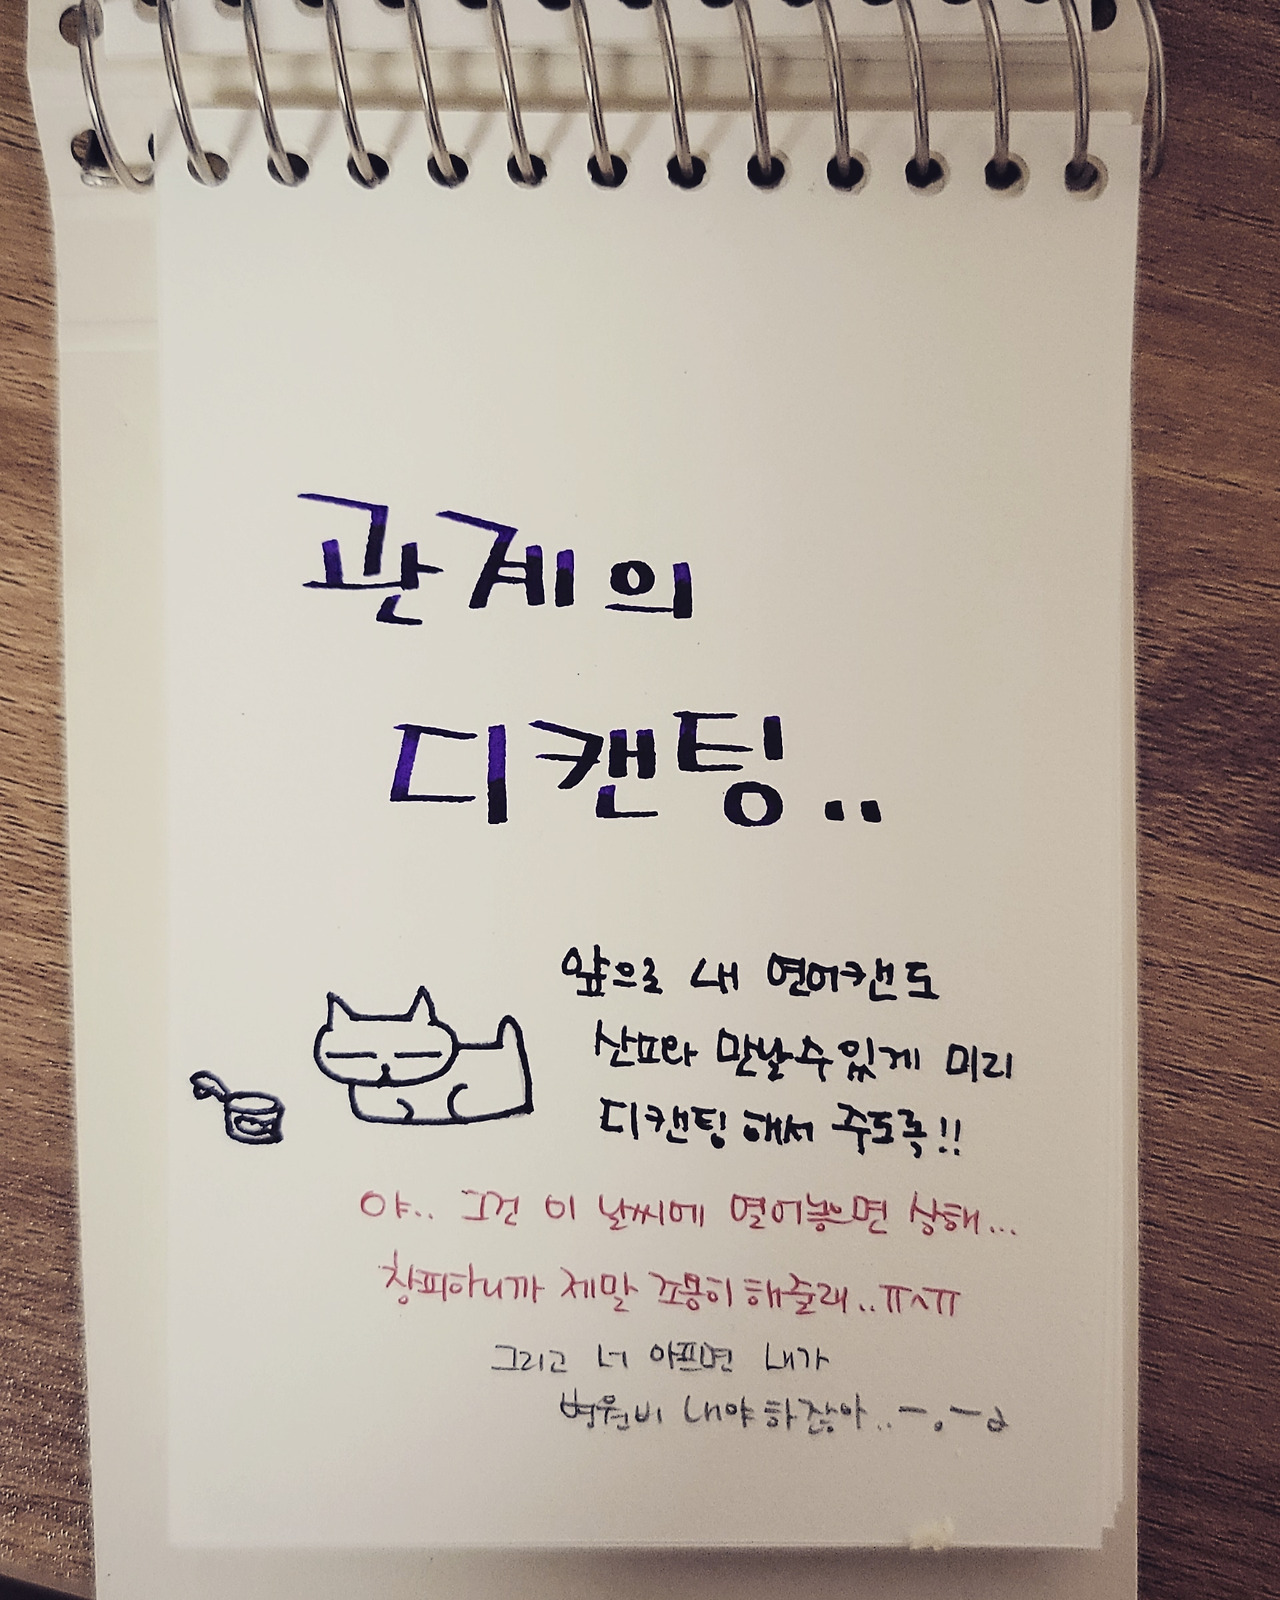 관계의
디캔팅..
앞으로 내 연어캔도
산표와 만날수있게 미리
디캔팅해서 주도록!!
야.. 그건 이 날씨에 열어놓으면 상해...
창피하니까 제말 조용히해줄래..ㅠㅅㅠ
그리고 너 아프면 내가
병원비 내야하잖아..ㅡ.ㅡ